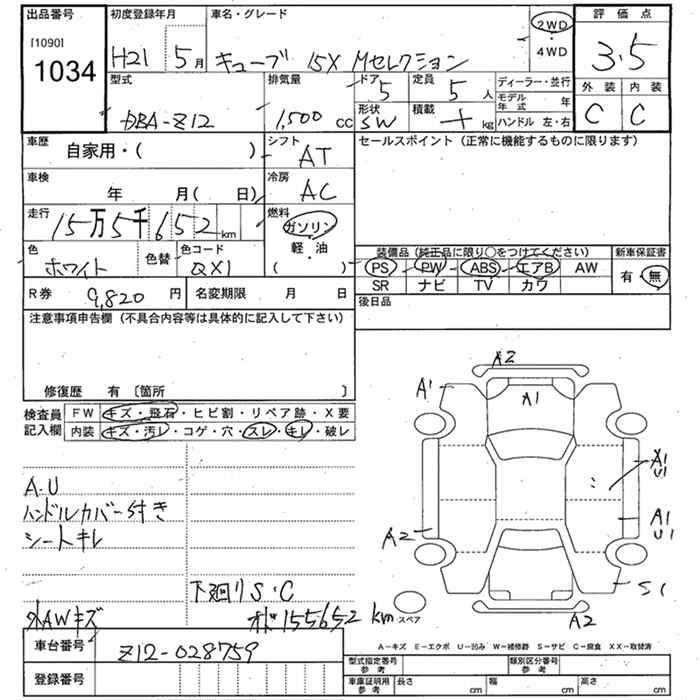 出品番号 初度登録年月 車名・グレード 評価点
[1090]
1034
H21 5月 キューブ 15X Mセレクション 2WD ・ 4WD 3.5
型式 排気量 ドア 定員 ディーラー・並行 外装 内装
DBA-Z12 1,500 cc 5 5人 モデル年式 年 C C
形状 SW 積載 kg ハンドル 左・右
車歴 自家用・( ) シフト AT セールスポイント (正常に機能するものに限ります)
車検 年 月( 日) 冷房 AC
走行 15万5千652km 燃料 ガソリン
軽・油
( )
色 ホワイト 色替 色コード QX1
装備品 (純正品に限り○をつけてください) 新車保証書
PS PW ABS エアB AW 有・無
SR ナビ TV カワ
R券 9,820 円 名変期限 月 日 後日品
注意事項申告欄 (不具合内容等は具体的に記入して下さい)
修復歴 有 〔箇所 〕
検査員記入欄 FW キズ・飛石・ヒビ割・リペア跡・X要
内装 キズ・汚レ・コゲ・穴・スレ・キレ・破レ
A2
A1 A1
A1
U1
A.U
ハンドルカバー付き A1
U1
シートキレ A2
下廻りS・C S1
外AWキズ オド155652km スペア A2
車台番号 Z12-028759
A-キズ E-エクボ U-凹み W-補修跡 S-サビ C-腐食 XX-取替済
登録番号
型式指定番号 参考 類別区分番号 参考
車庫証明用 参考 長さ cm 幅 cm 高さ cm